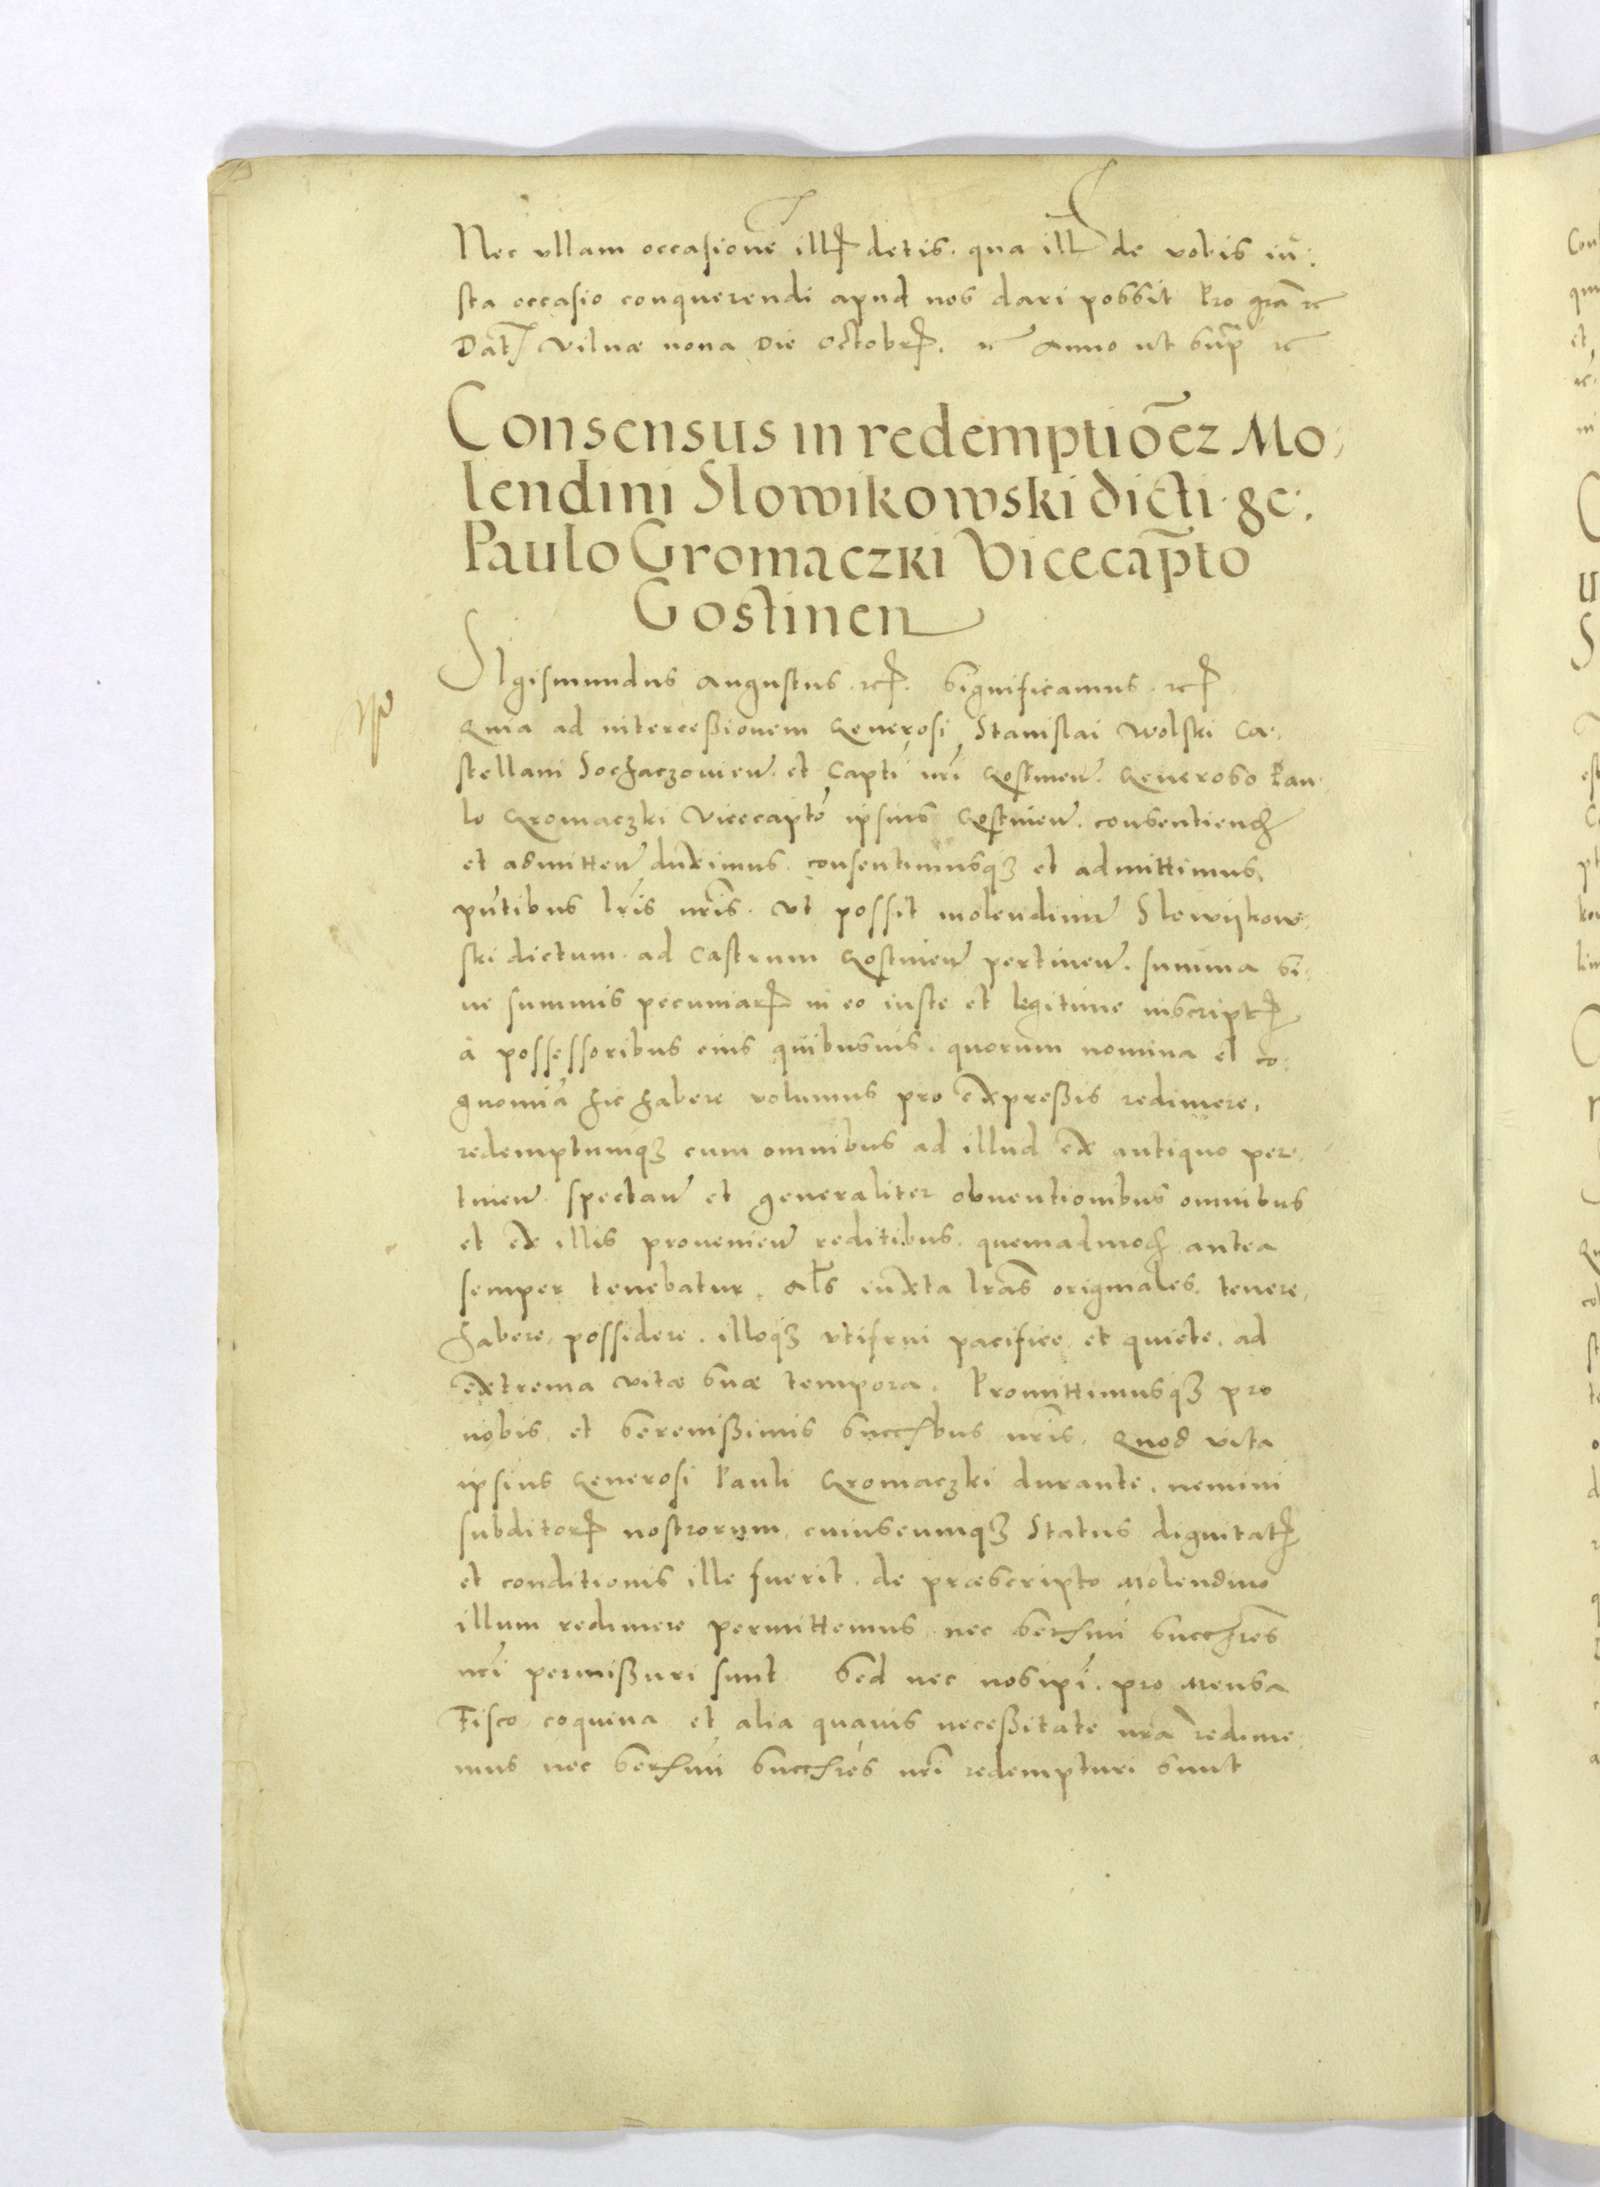 Nec ullam occasionē illꝝ detis, qua illi de vobis iu⸗
sta occasio conquerendi apud nos dari possit Pro grā ꝛc
Dat Vilnæ nona Die Octobrꝭ. ꝛc Anno ut supra ꝛc
Consensus in redemptiōez Mo⸗
lendini Slowikowski dicti gc:
Paulo Gromaczki Vicecap̄to
Gostinen
Sigismundus Augustus ꝛcꝭ. Significamus ꝛcꝭ
Quia ad intercessionem Generosi Stanislai Wolski Ca⸗
stellani Sochaczovien. et Capti nrī Gostinen. Generoso Pau⸗
lo Gromaczki Vicecapto ipsius Gostinen. consentiend
et admitten duximus. consentimusqꝫ et admittimus,
pn̄tibus lrīs nrīs. Vt possit molendinū Slowijkow⸗
ski dictum. ad Castrum Gostinen pertinen. summa si⸗
ue summis pecuniarꝝ in eo iuste et legitime inscriptꝭ
à possessoribus eius quibusuis. quorum nomina et co⸗
gnomīa hic habere volumus pro expressis redimere,
redemptumqꝫ cum omnibus ad illud ex antiquo per⸗
tinen. spectan et generaliter obuentionibus omnibus
et ex illis prouenien reditibus. quemadmod antea
semper tenebatur. Als̄ iuxta lrās originales. tenere,
habere, possidere. illoqꝫ vtifrui pacifice et quiete, ad
extrema vitæ suæ tempora. Promittimusqꝫ pro
nobis, et Serenissimis Succꝭbus nrīs. Quod vita
ipsius Generosi Pauli Gromaczki durante, nemini
subditorꝝ nostrorum, cuiuscumqꝫ Status dignitatꝭ
et conditionis ille fuerit, de præscripto Molendino
illum redimere permittemus nec Sermi Succres
nrī permissuri sunt Sed nec nosipī. pro Mensa
Fisco, coquina et alia quauis necessitate nrā redime⸗
mus nec Sermi Succres nrī redempturi sunt